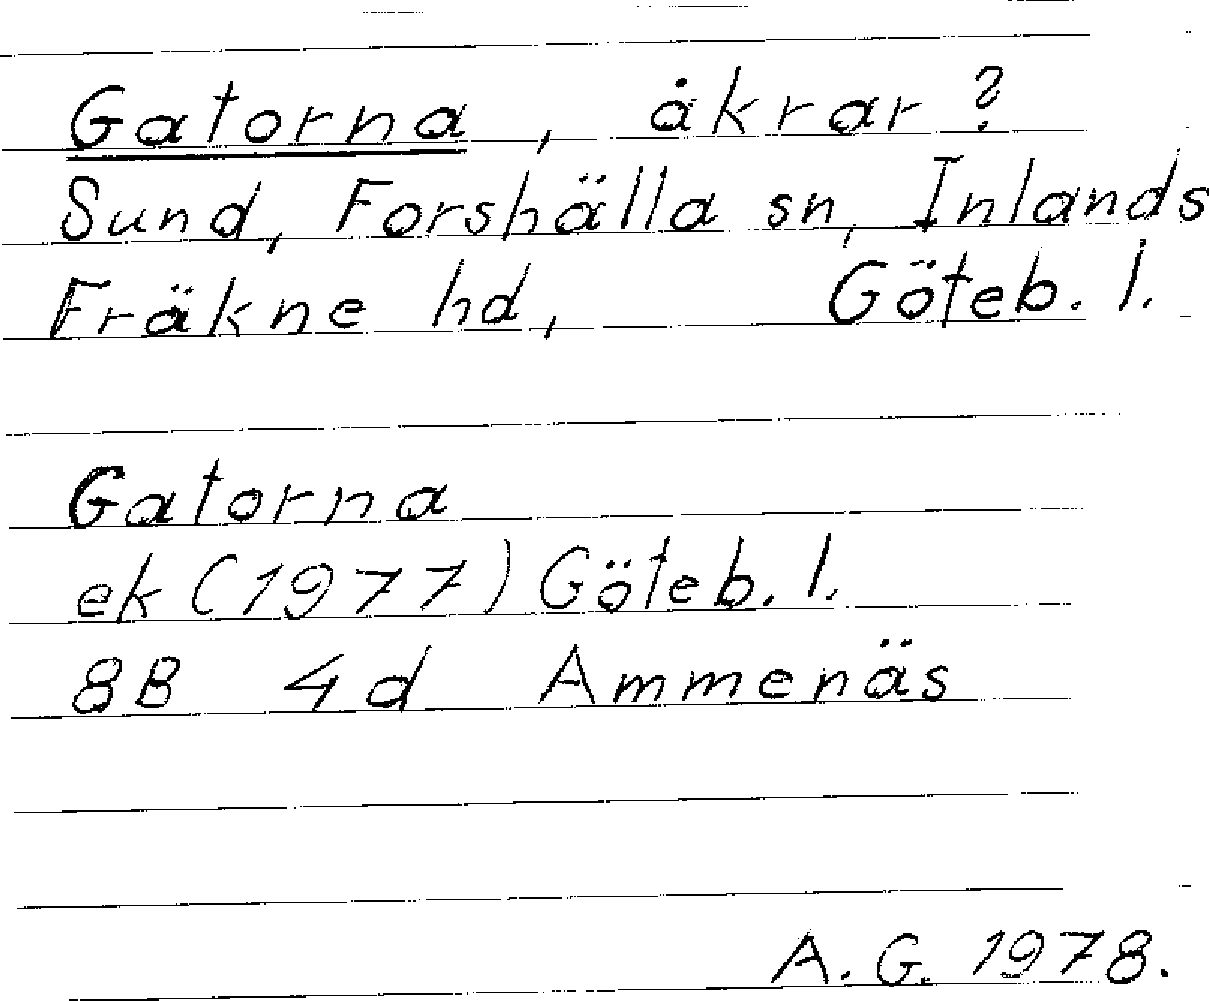 Gatorna, åkrar?
Sund, Forshälla sn, Inlands
Fräkne hd, Göteb. l.
Gatorna
ek (1977) Göteb. l.
8B 4d Ammenäs
A. G. 1978.